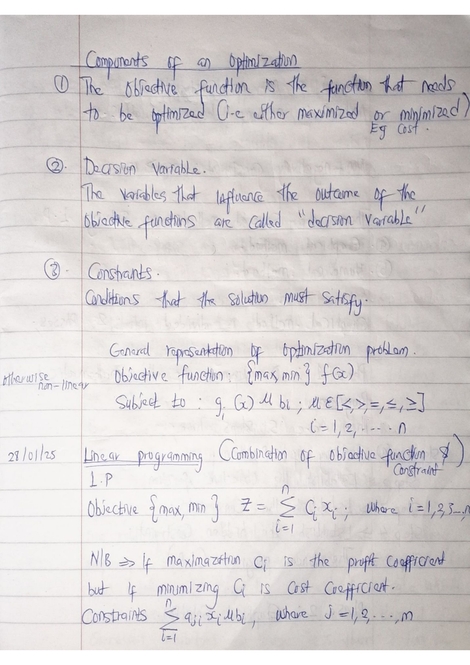 Components of an Optimization
① The objective function is the function that needs
to be optimized (i.e either maximized or minimized)
Eg Cost.
②. Decision Variable.
The Variables that influence the outcome of the
objective functions are called "decision variable"
③. Constraints.
Conditions that the solution must satisfy.
General representation of optimization problem.
Objective function: {max, min} f(x)
otherwise
non-linear
Subject to: gᵢ(x) μ bᵢ; μ ∈ [<, >, =, ≤, ≥]
i = 1, 2, ..... n
28/01/25 Linear programming (Combination of objective function &
Constraint)
L.P
Objective {max, min} Z = ∑ᵢ₌₁ⁿ Cᵢ xᵢ; where i = 1, 2, 3..., n
N/B ⇒ If maximazation Cᵢ is the profit coefficient
but if minimizing Cᵢ is Cost Coefficient.
Constraints ∑ᵢ₌₁ⁿ aⱼᵢ xᵢ μ bᵢ, where j = 1, 2, ..., m